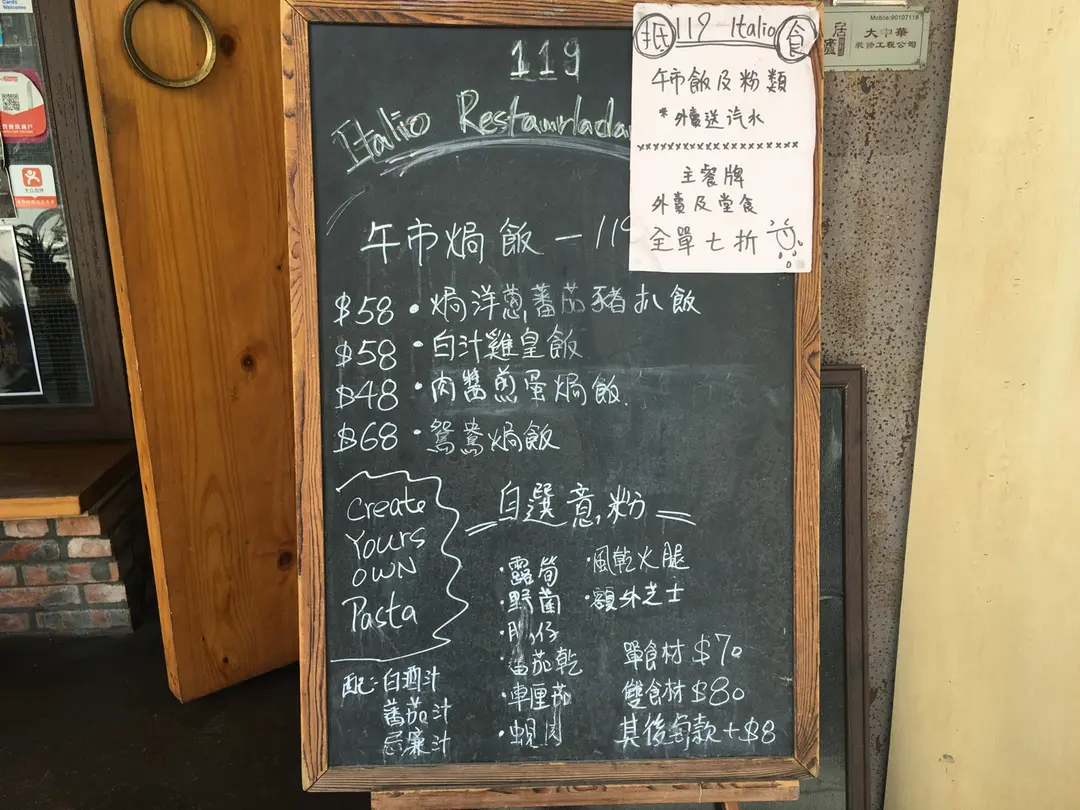 119
Italio Restaurnlada
午市焗飯 — 119
$58 • 焗洋蔥蕃茄豬扒飯
$58 • 白汁雞皇飯
$48 • 肉醬煎蛋焗飯
$68 • 鴛鴦焗飯
Create
Yours
OWN
Pasta
自選意粉
• 露筍
• 野菌
• 腸仔
• 番茄乾
• 車厘茄
• 蜆肉
• 風乾火腿
• 額外芝士
單食材 $70
雙食材 $80
其後每款 + $8
配: 白酒汁
蕃茄汁
忌廉汁
抵 119 Italio 食
午市飯及粉類
* 外賣送汽水
xxxxxxxxxxxxxxxxxxxxx
主餐牌
外賣及堂食
全單七折
Mobile:90107118
居
大中華
裝修工程公司